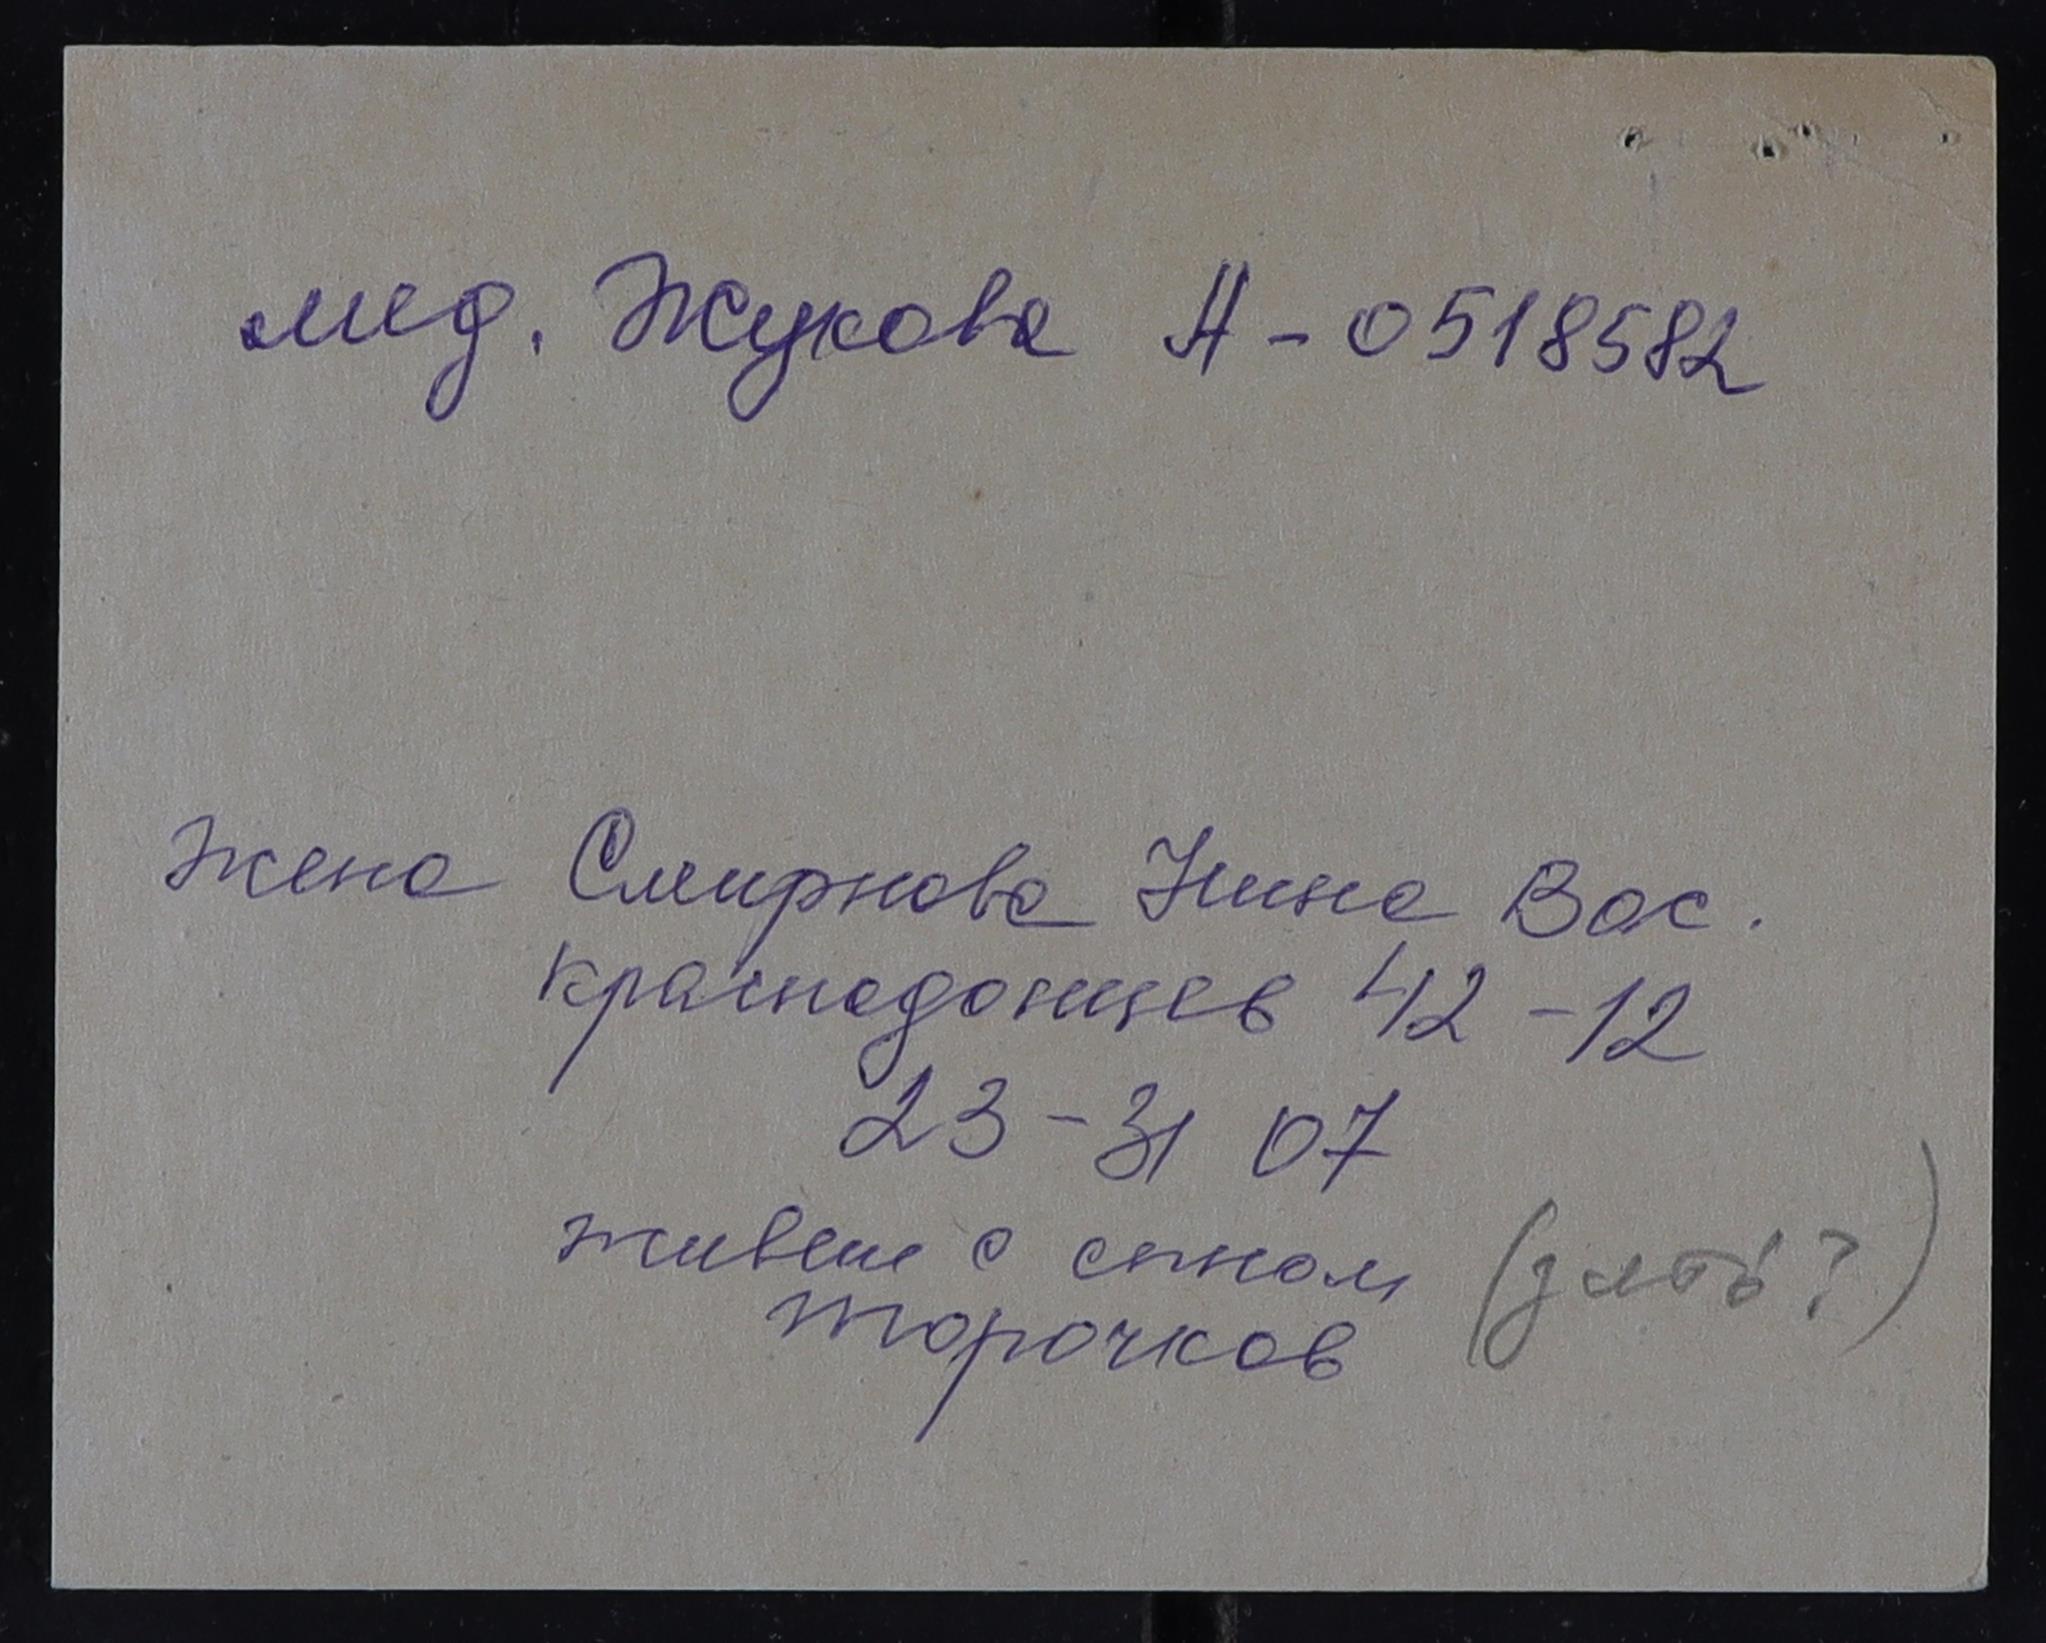 мед. Жукова А-0518582
Жена Смирнова Нина Вас.
Краснодонцев 42-12
23-31 07
живет с сыном (зять?)
Торочков